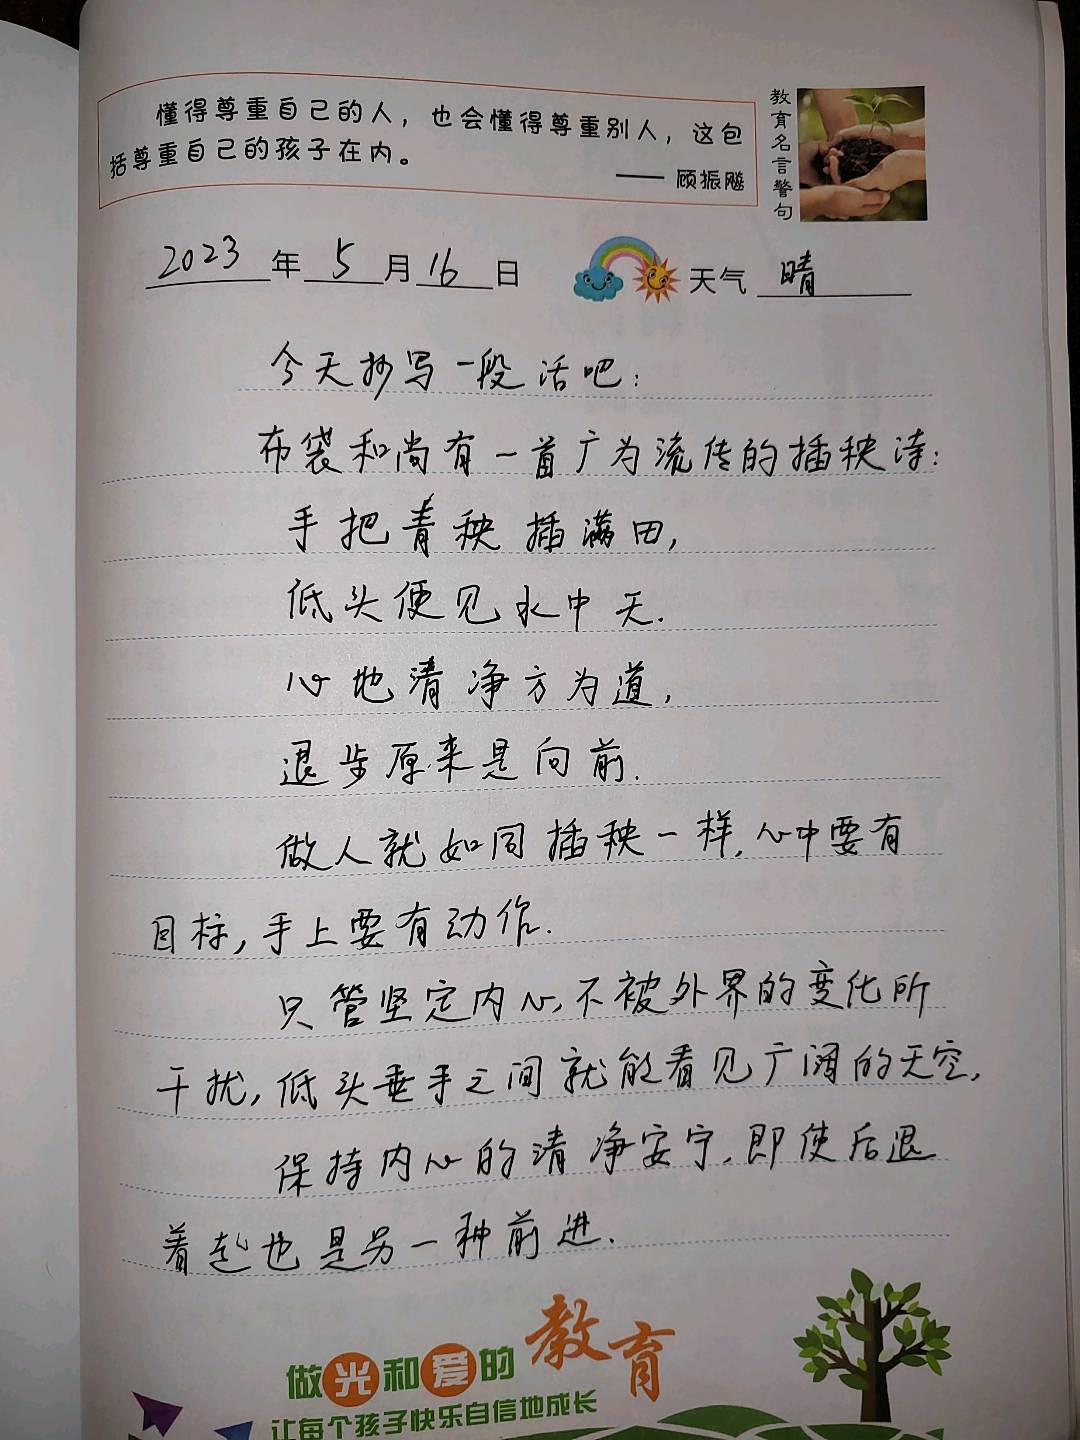 懂得尊重自己的人，也会懂得尊重别人，这包
括尊重自己的孩子在内。
—— 顾振飚
教育名言警句
2023年5月16日 天气 晴
今天抄写一段话吧：
布袋和尚有一首广为流传的插秧诗：
手把青秧插满田，
低头便见水中天.
心地清净方为道，
退步原来是向前.
做人就如同插秧一样，心中要有
目标，手上要有动作.
只管坚定内心，不被外界的变化所
干扰，低头垂手之间就能看见广阔的天空，
保持内心的清净安宁，即使后退
着走也是另一种前进.
做光和爱的教育
让每个孩子快乐自信地成长